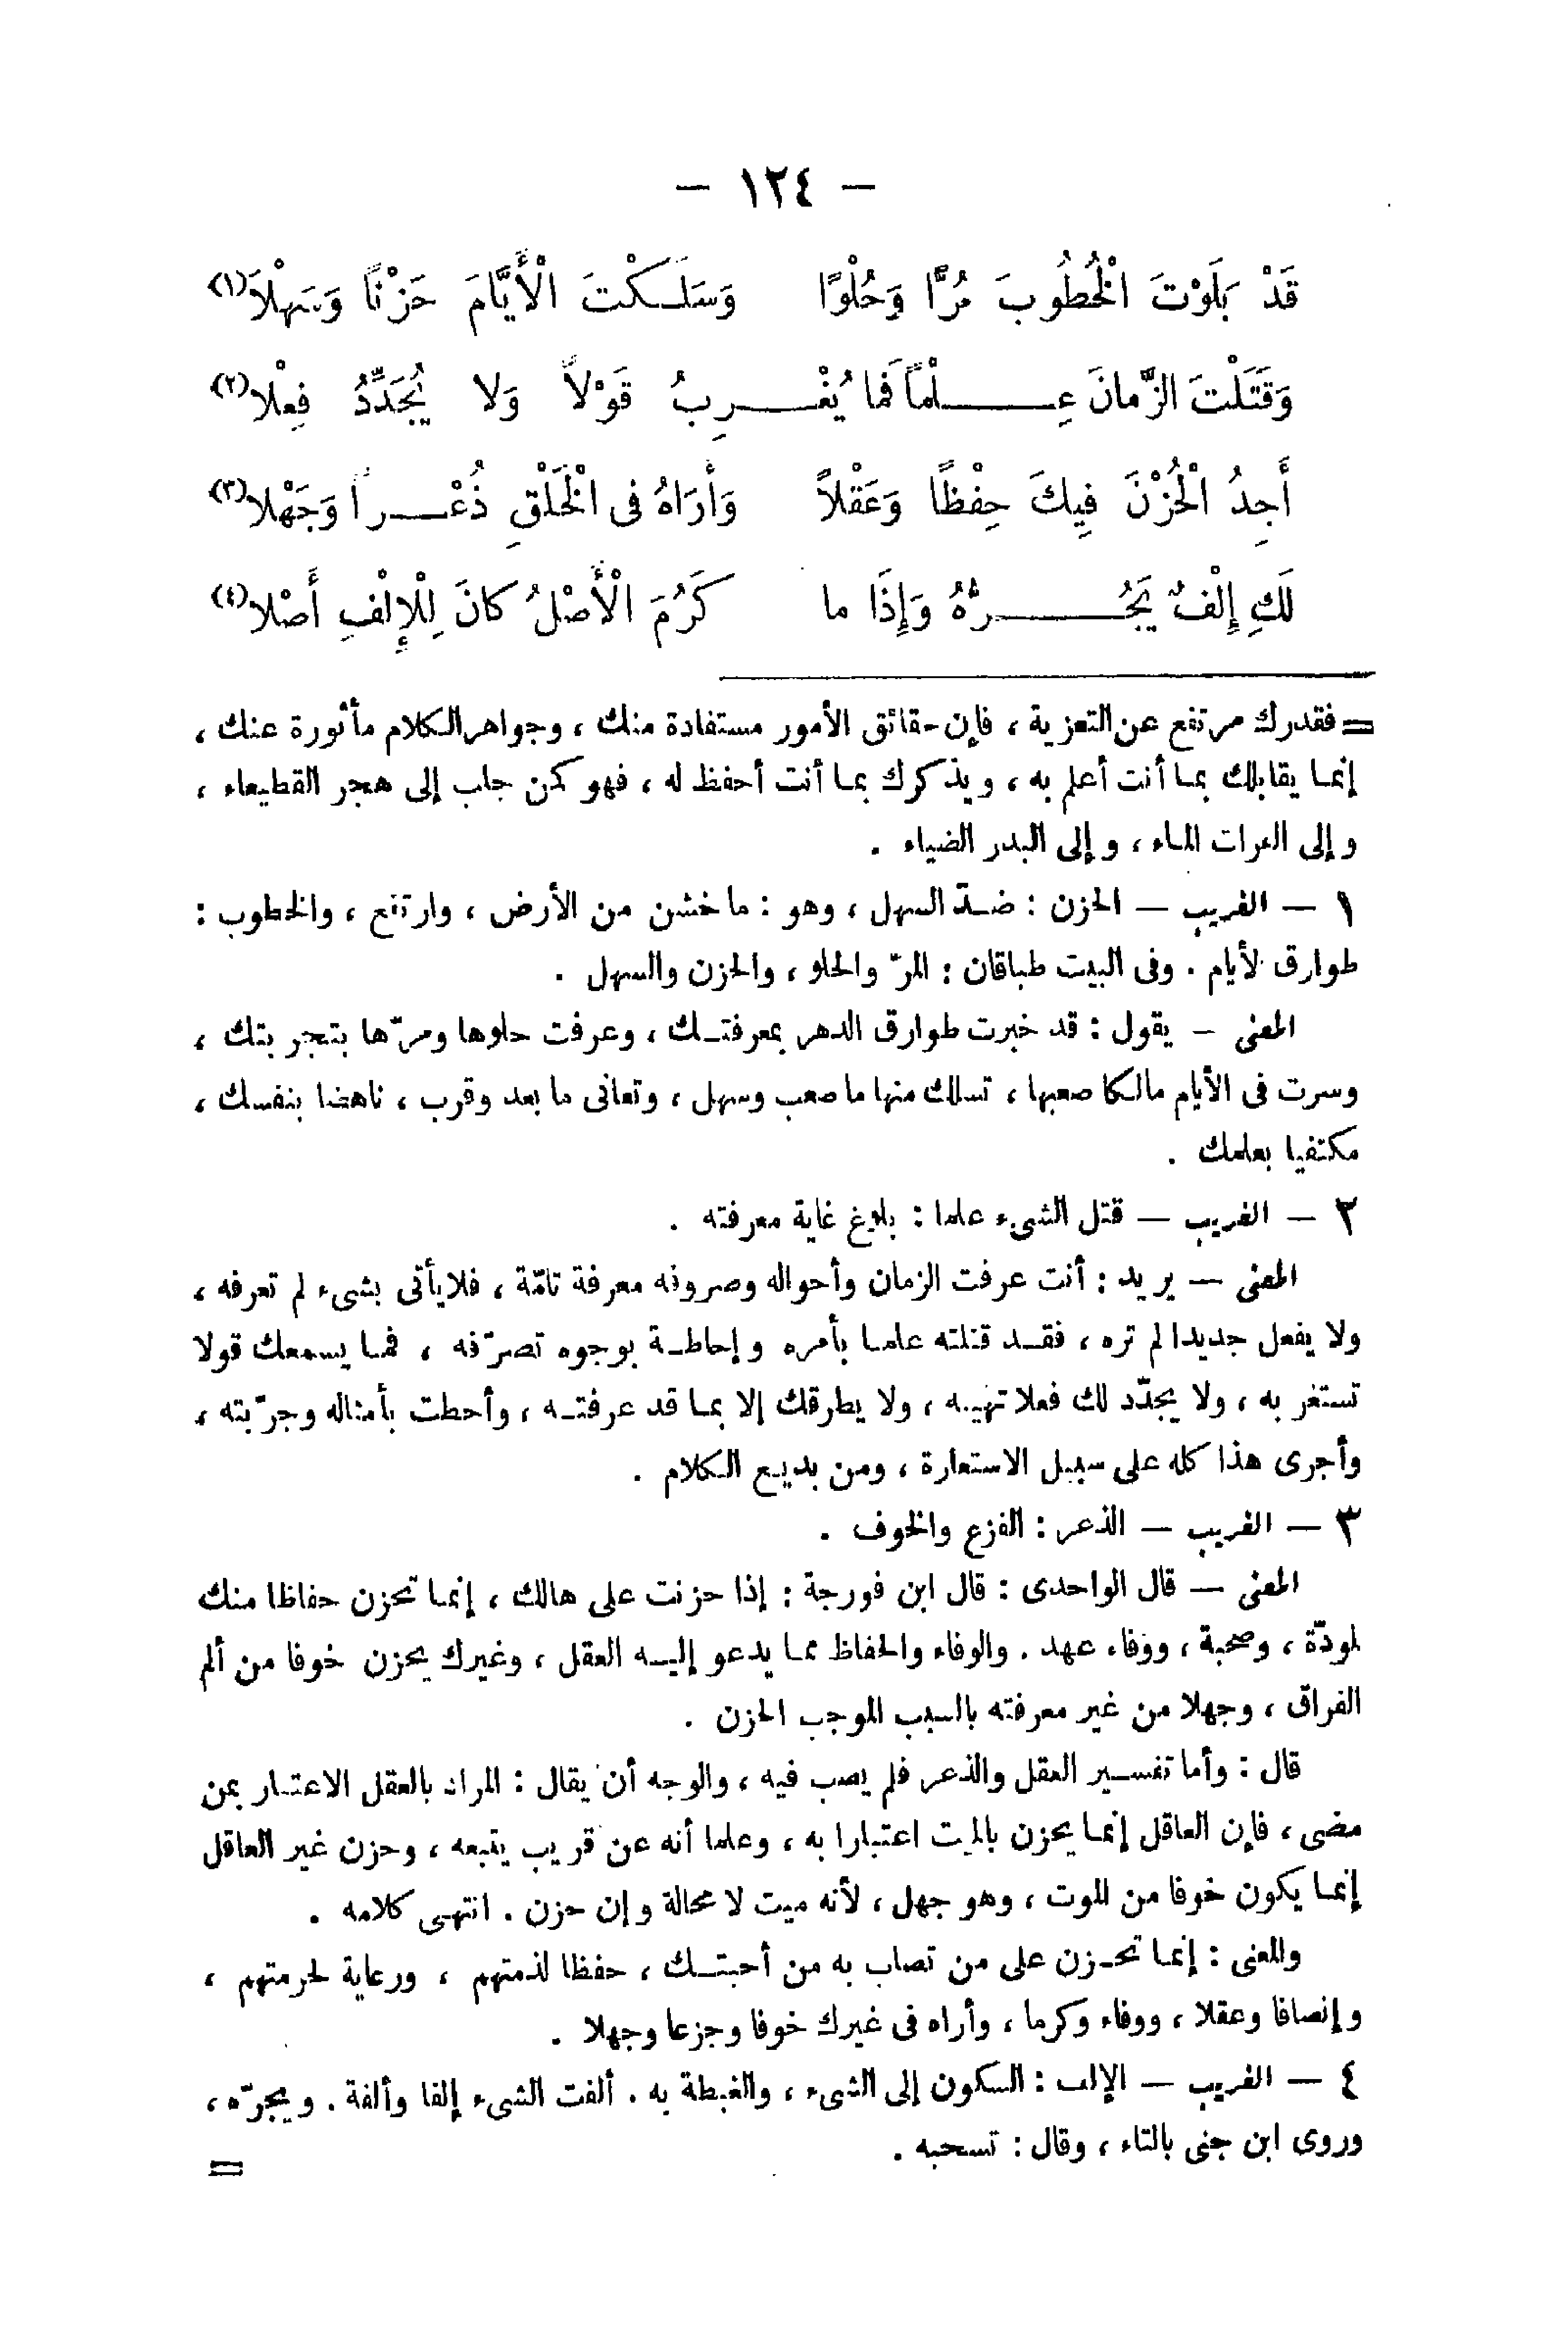 – ١٢٤ –
قَدْ بَلَوْتَ الْخُطُوبَ مُرًّا وَحُلْوًا وَسَلَكْتَ الْأَيَّامَ حَزْنًا وَسَهْلَا(١)
وَقَتَلْتَ الزَّمانَ عِلْماً فَما يُغْرِبُ قَوْلاً وَلا يُجَدِّدُ فِعْلا(٢)
أَجِدُ الْحُزْنَ فِيكَ حِفْظًا وَعَقْلاً وَأَرَاهُ فى الْخَلْقِ ذُعْراً وَجَهْلا(٣)
لَكَ إِلْفٌ يَجُرُّهُ وَإِذَا ما كَرُمَ الْأَصْلُ كانَ لِلْإِلْفِ أَصْلا(٤)
= فقدرك مرتفع عن التعزية ، فإن حقائق الأمور مستفادة منك ، وجواهر الكلام مأثورة عنك ،
إنما يقابلك بما أنت أعلم به ، ويذكرك بما أنت أحفظ له ، فهو كمن جلب إلى هجر القطيعاء ،
وإلى الفرات الماء ، وإلى البدر الضياء .
١ – الغريب – الحزن : ضدّ السهل ، وهو : ما خشن من الأرض ، وارتفع ، والخطوب :
طوارق الأيام . وفى البيت طباقان : المرّ والحلو ، والحزن والسهل .
المعنى – يقول : قد خبرت طوارق الدهر بمعرفتك ، وعرفت حلوها ومرّها بتجربتك ،
وسرت فى الأيام مالكا صعبها ، تسلك منها ما صعب وسهل ، وتعانى ما بعد وقرب ، ناهضا بنفسك ،
مكتفيا بعلمك .
٢ – الغريب – قتل الشىء علما : بلوغ غاية معرفته .
المعنى – يريد : أنت عرفت الزمان وأحواله وصروفه معرفة تامّة ، فلا يأتى بشىء لم تعرفه ،
ولا يفعل جديدا لم تره ، فقد قتلته علما بأمره وإحاطة بوجوه تصرّفه ، فما يسمعك قولا
تستغربه ، ولا يجدّد لك فعلا تهيبه ، ولا يطرقك إلا بما قد عرفته ، وأحطت بأمثاله وجرّبته ،
وأجرى هذا كله على سبيل الاستعارة ، ومن بديع الكلام .
٣ – الغريب – الذعر : الفزع والخوف .
المعنى – قال الواحدى : قال ابن فورجة : إذا حزنت على هالك ، إنما تحزن حفاظا منك
لمودّة ، وصحبة ، ووفاء عهد . والوفاء والحفاظ مما يدعو إليه العقل ، وغيرك يحزن خوفا من ألم
الفراق ، وجهلا من غير معرفته بالسبب الموجب الحزن .
قال : وأما تفسير العقل والذعر فلم يصب فيه ، والوجه أن يقال : المراد بالعقل الاعتبار بمن
مضى ، فإن العاقل إنما يحزن بالميت اعتبارا به ، وعلما أنه عن قريب يتبعه ، وحزن غير العاقل
إنما يكون خوفا من الموت ، وهو جهل ، لأنه ميت لا محالة وإن حزن . انتهى كلامه .
والمعنى : إنما تحزن على من تصاب به من أحبتك ، حفظا لذمتهم ، ورعاية لحرمتهم ،
وإنصافا وعقلا ، ووفاء وكرما ، وأراه فى غيرك خوفا وجزعا وجهلا .
٤ – الغريب – الإلف : السكون إلى الشىء ، والغبطة به . ألفت الشىء إلفا وألفة . ويجرّه ،
وروى ابن جنى بالتاء ، وقال : تسحبه .
=